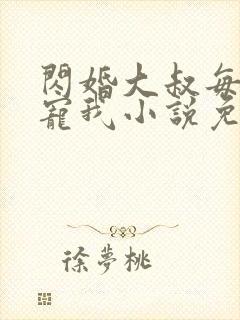 閃婚大叔每
寵我小說免
徐夢桃